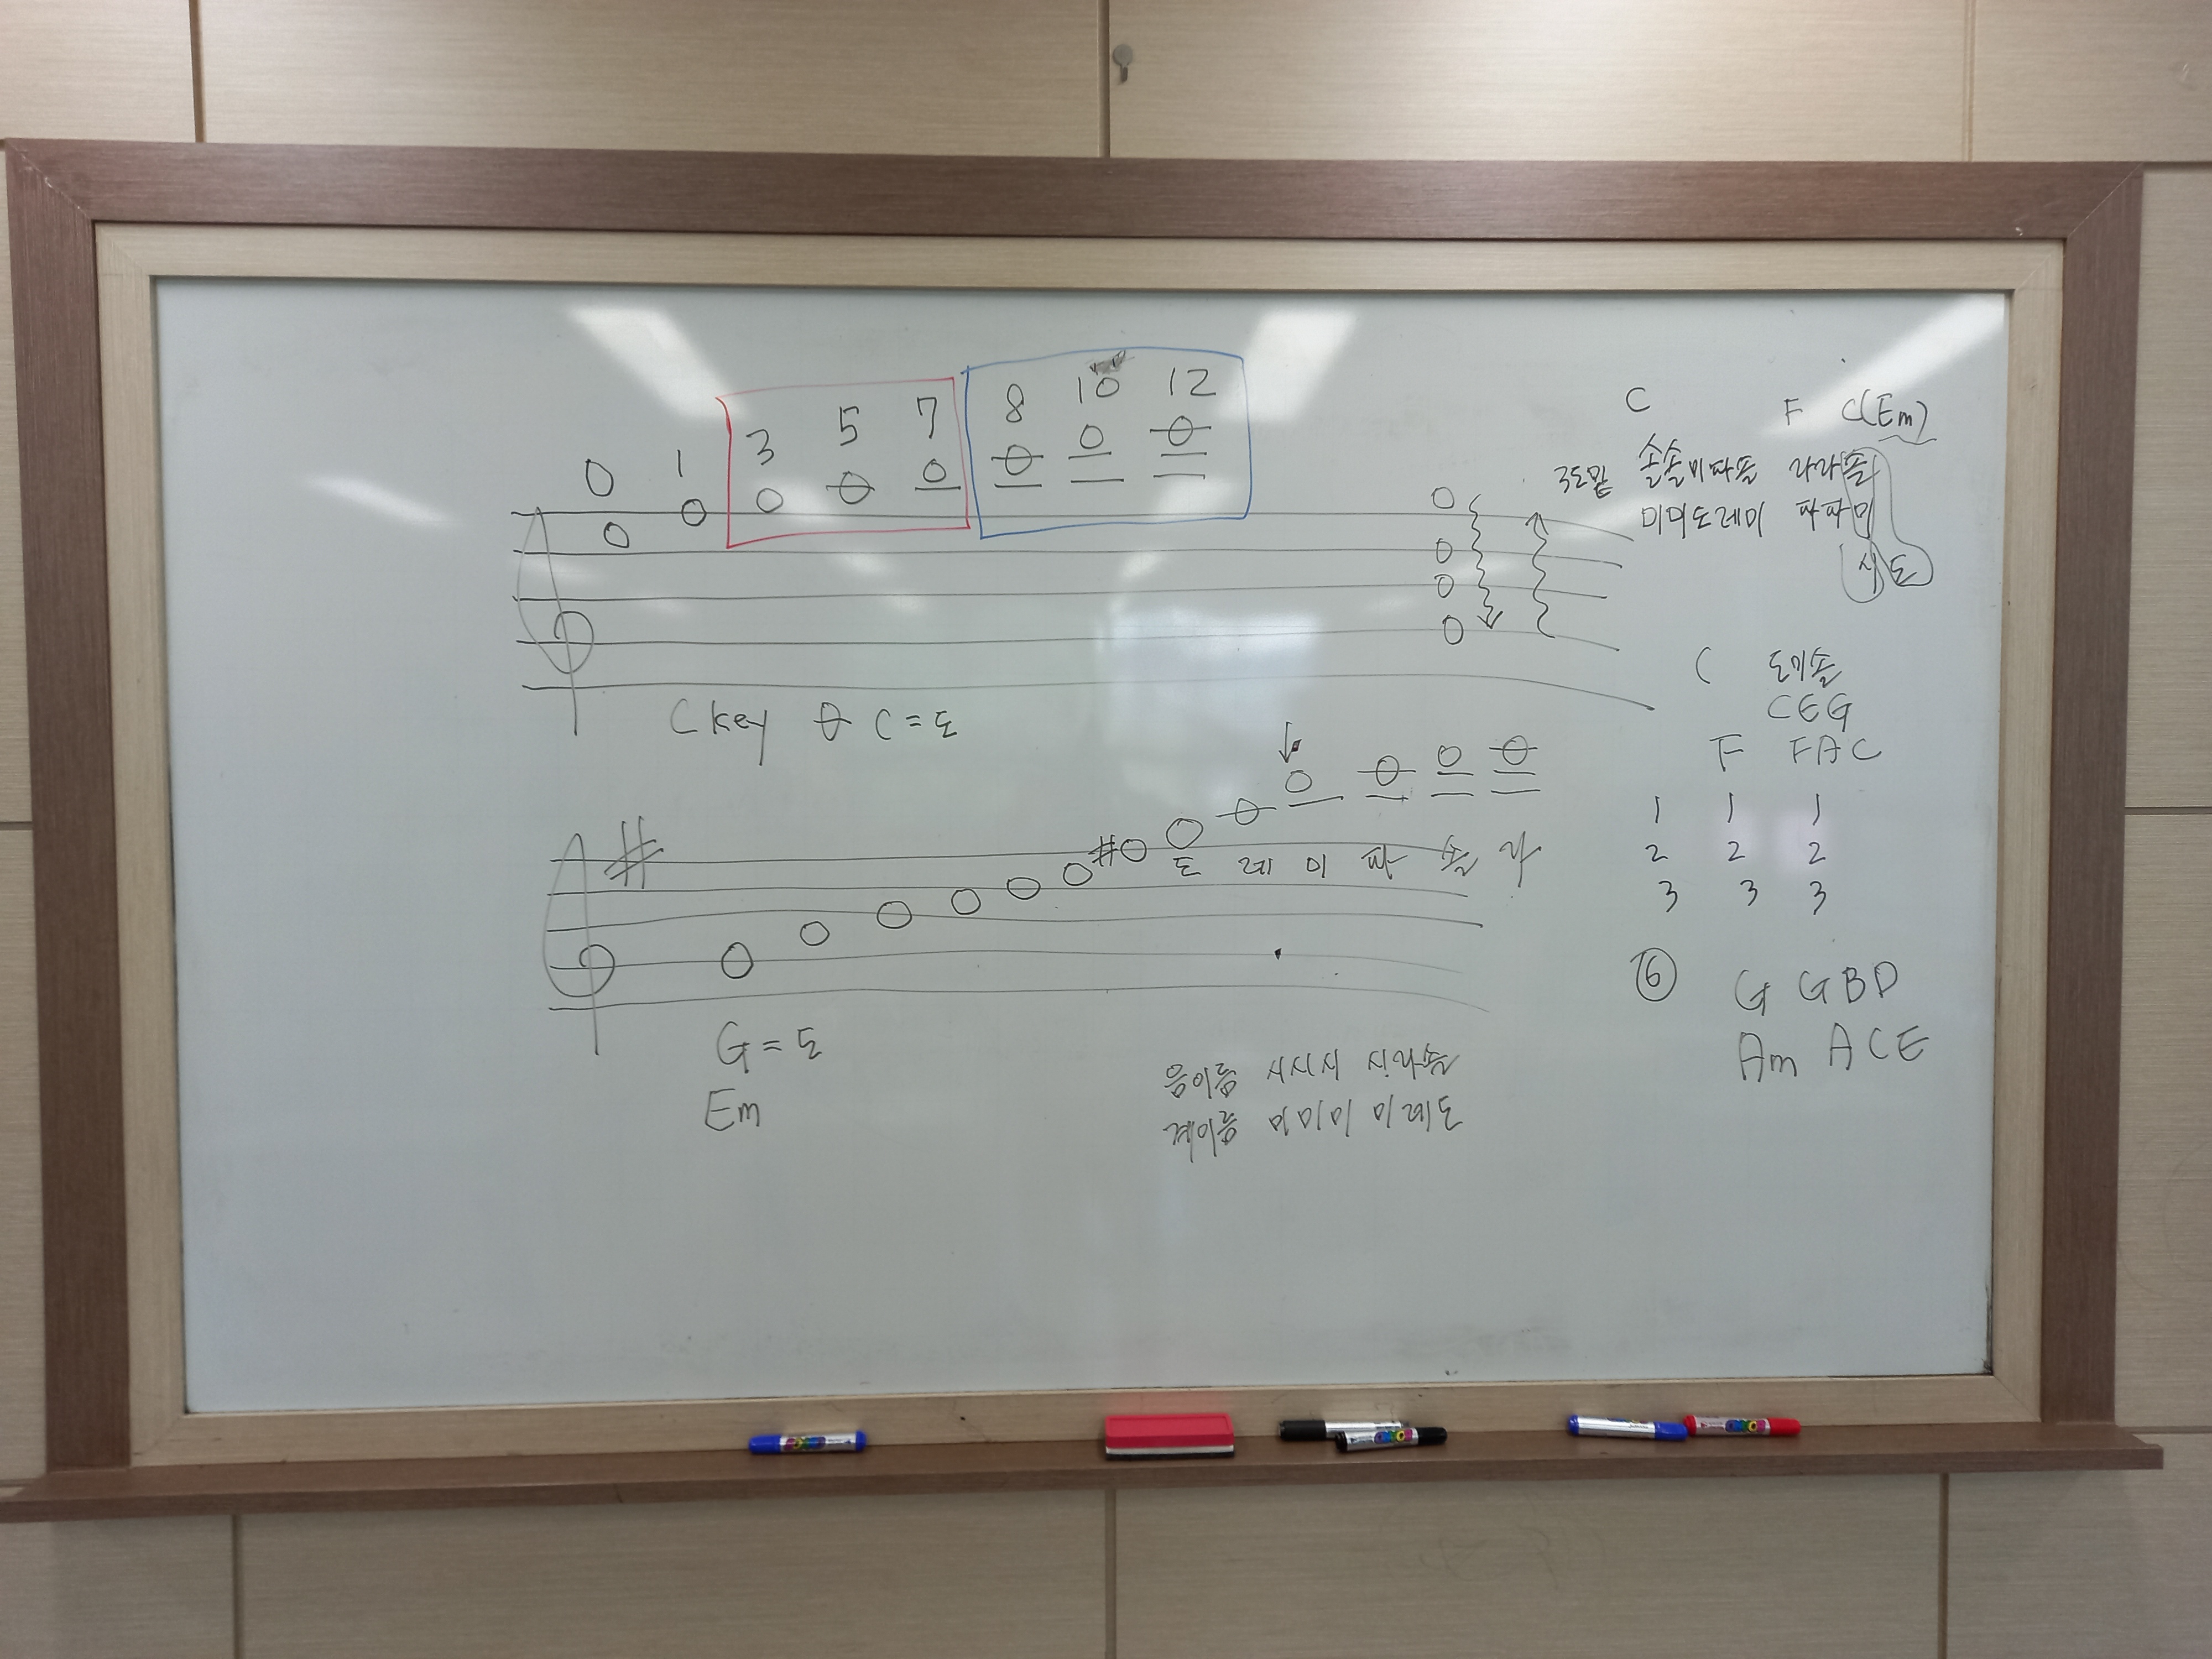 0 1 3 5 7 8 10 12
C key C = 도
#
#
도 레 미 파 솔 라
G = 도
Em
음이름 시시시 시라솔
계이름 미미미 미레도
C F C(Em)
3도밑 솔솔미파솔 라라솔
미미도레미 파파미
시 도
C 도미솔
CEG
F FAC
1 1 1
2 2 2
3 3 3
⑥ G GBD
Am ACE